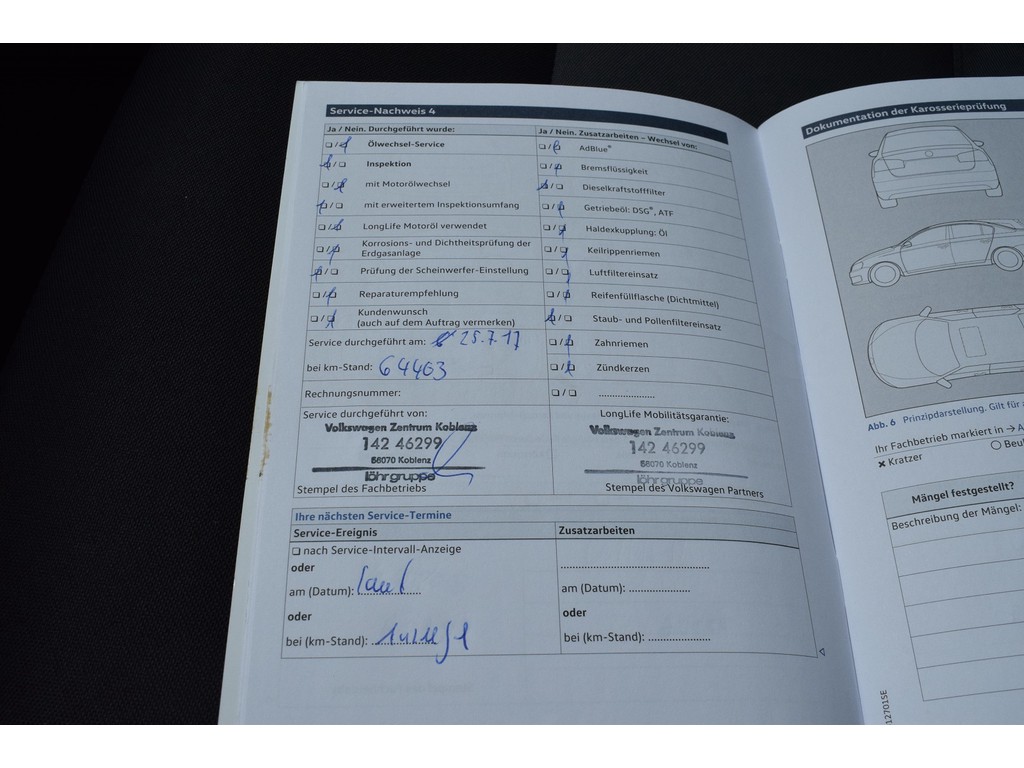 Service-Nachweis 4
Ja / Nein. Durchgeführt wurde:
Ölwechsel-Service
Inspektion
mit Motorölwechsel
mit erweitertem Inspektionsumfang
LongLife Motoröl verwendet
Korrosions- und Dichtheitsprüfung der
Erdgasanlage
Prüfung der Scheinwerfer-Einstellung
Reparaturempfehlung
Kundenwunsch
(auch auf dem Auftrag vermerken)
Service durchgeführt am: 25.7.17
bei km-Stand: 64403
Rechnungsnummer:
Service durchgeführt von:
Volkswagen Zentrum Koblenz
142 46299
56070 Koblenz
löhrgruppe
Stempel des Fachbetriebs
Ja / Nein. Zusatzarbeiten – Wechsel von:
AdBlue®
Bremsflüssigkeit
Dieselkraftstofffilter
Getriebeöl: DSG®, ATF
Haldexkupplung: Öl
Keilrippenriemen
Luftfiltereinsatz
Reifenfüllflasche (Dichtmittel)
Staub- und Pollenfiltereinsatz
Zahnriemen
Zündkerzen
LongLife Mobilitätsgarantie:
Volkswagen Zentrum Koblenz
142 46299
56070 Koblenz
löhrgruppe
Stempel des Volkswagen Partners
Ihre nächsten Service-Termine
Service-Ereignis
nach Service-Intervall-Anzeige
oder
am (Datum): laut
oder
bei (km-Stand):
Zusatzarbeiten
am (Datum):
oder
bei (km-Stand):
Dokumentation der Karosserieprüfung
Abb. 6 Prinzipdarstellung. Gilt für
Ihr Fachbetrieb markiert in → A
× Kratzer
Beu
Mängel festgestellt?
Beschreibung der Mängel:
12701SE